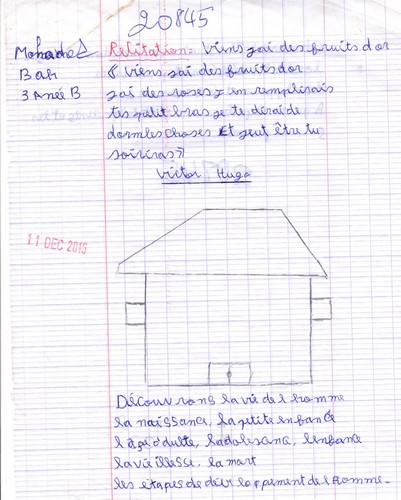 20845
Mohade D
Bah
3 Anée B
Rélitation: Viens j'ai des fruits d'or
« viens j'ai des fruits d'or
j'ai des roses j'en remplirais
tes petit bras je te dirai de
dormles choses Et peut être tu
soiriras »
Victor Hugo
11 DEC 2015
Découvrons la vie de l'homme
la naissance, la petite enfance
l'âge d'dulte, ladolescance, l'enfance
la vieillesse, la mort
les etapes de développement de l'homme.